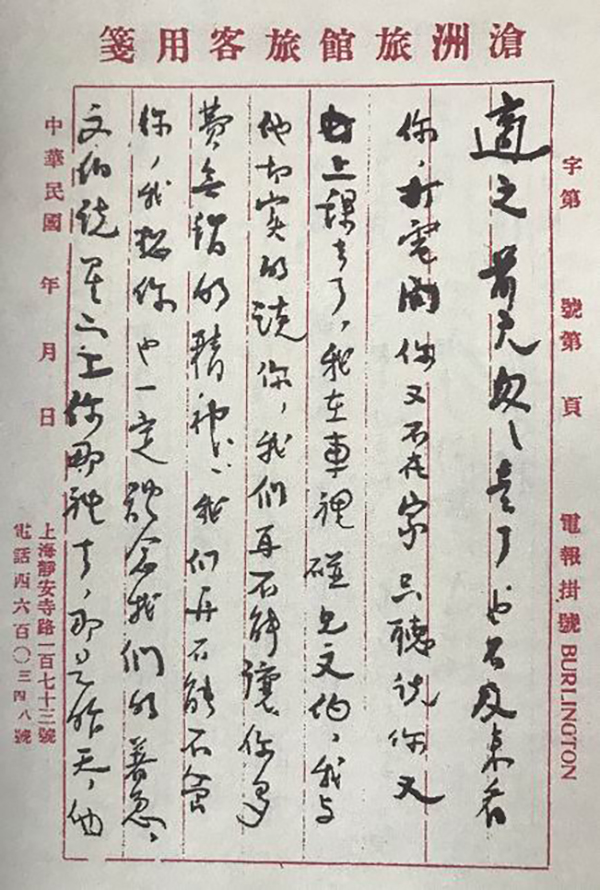 滄洲旅館旅客用箋
字第 號第 頁 電報掛號 BURLINGTON
適之 前天匆匆走了也不及來看
你,打電問你又不在家只聽說你又
上課去了,我在車裡碰見文伯,我与
他切实的談你,我们再不能讓你多
費無謂的精神,我们再不能不管
你,我想你也一定體念我们的善意,
文伯說星六上你那裡去,那是昨天,他
中華民國 年 月 日
上海靜安寺路一百七十三號
電話西六百〇三四八號